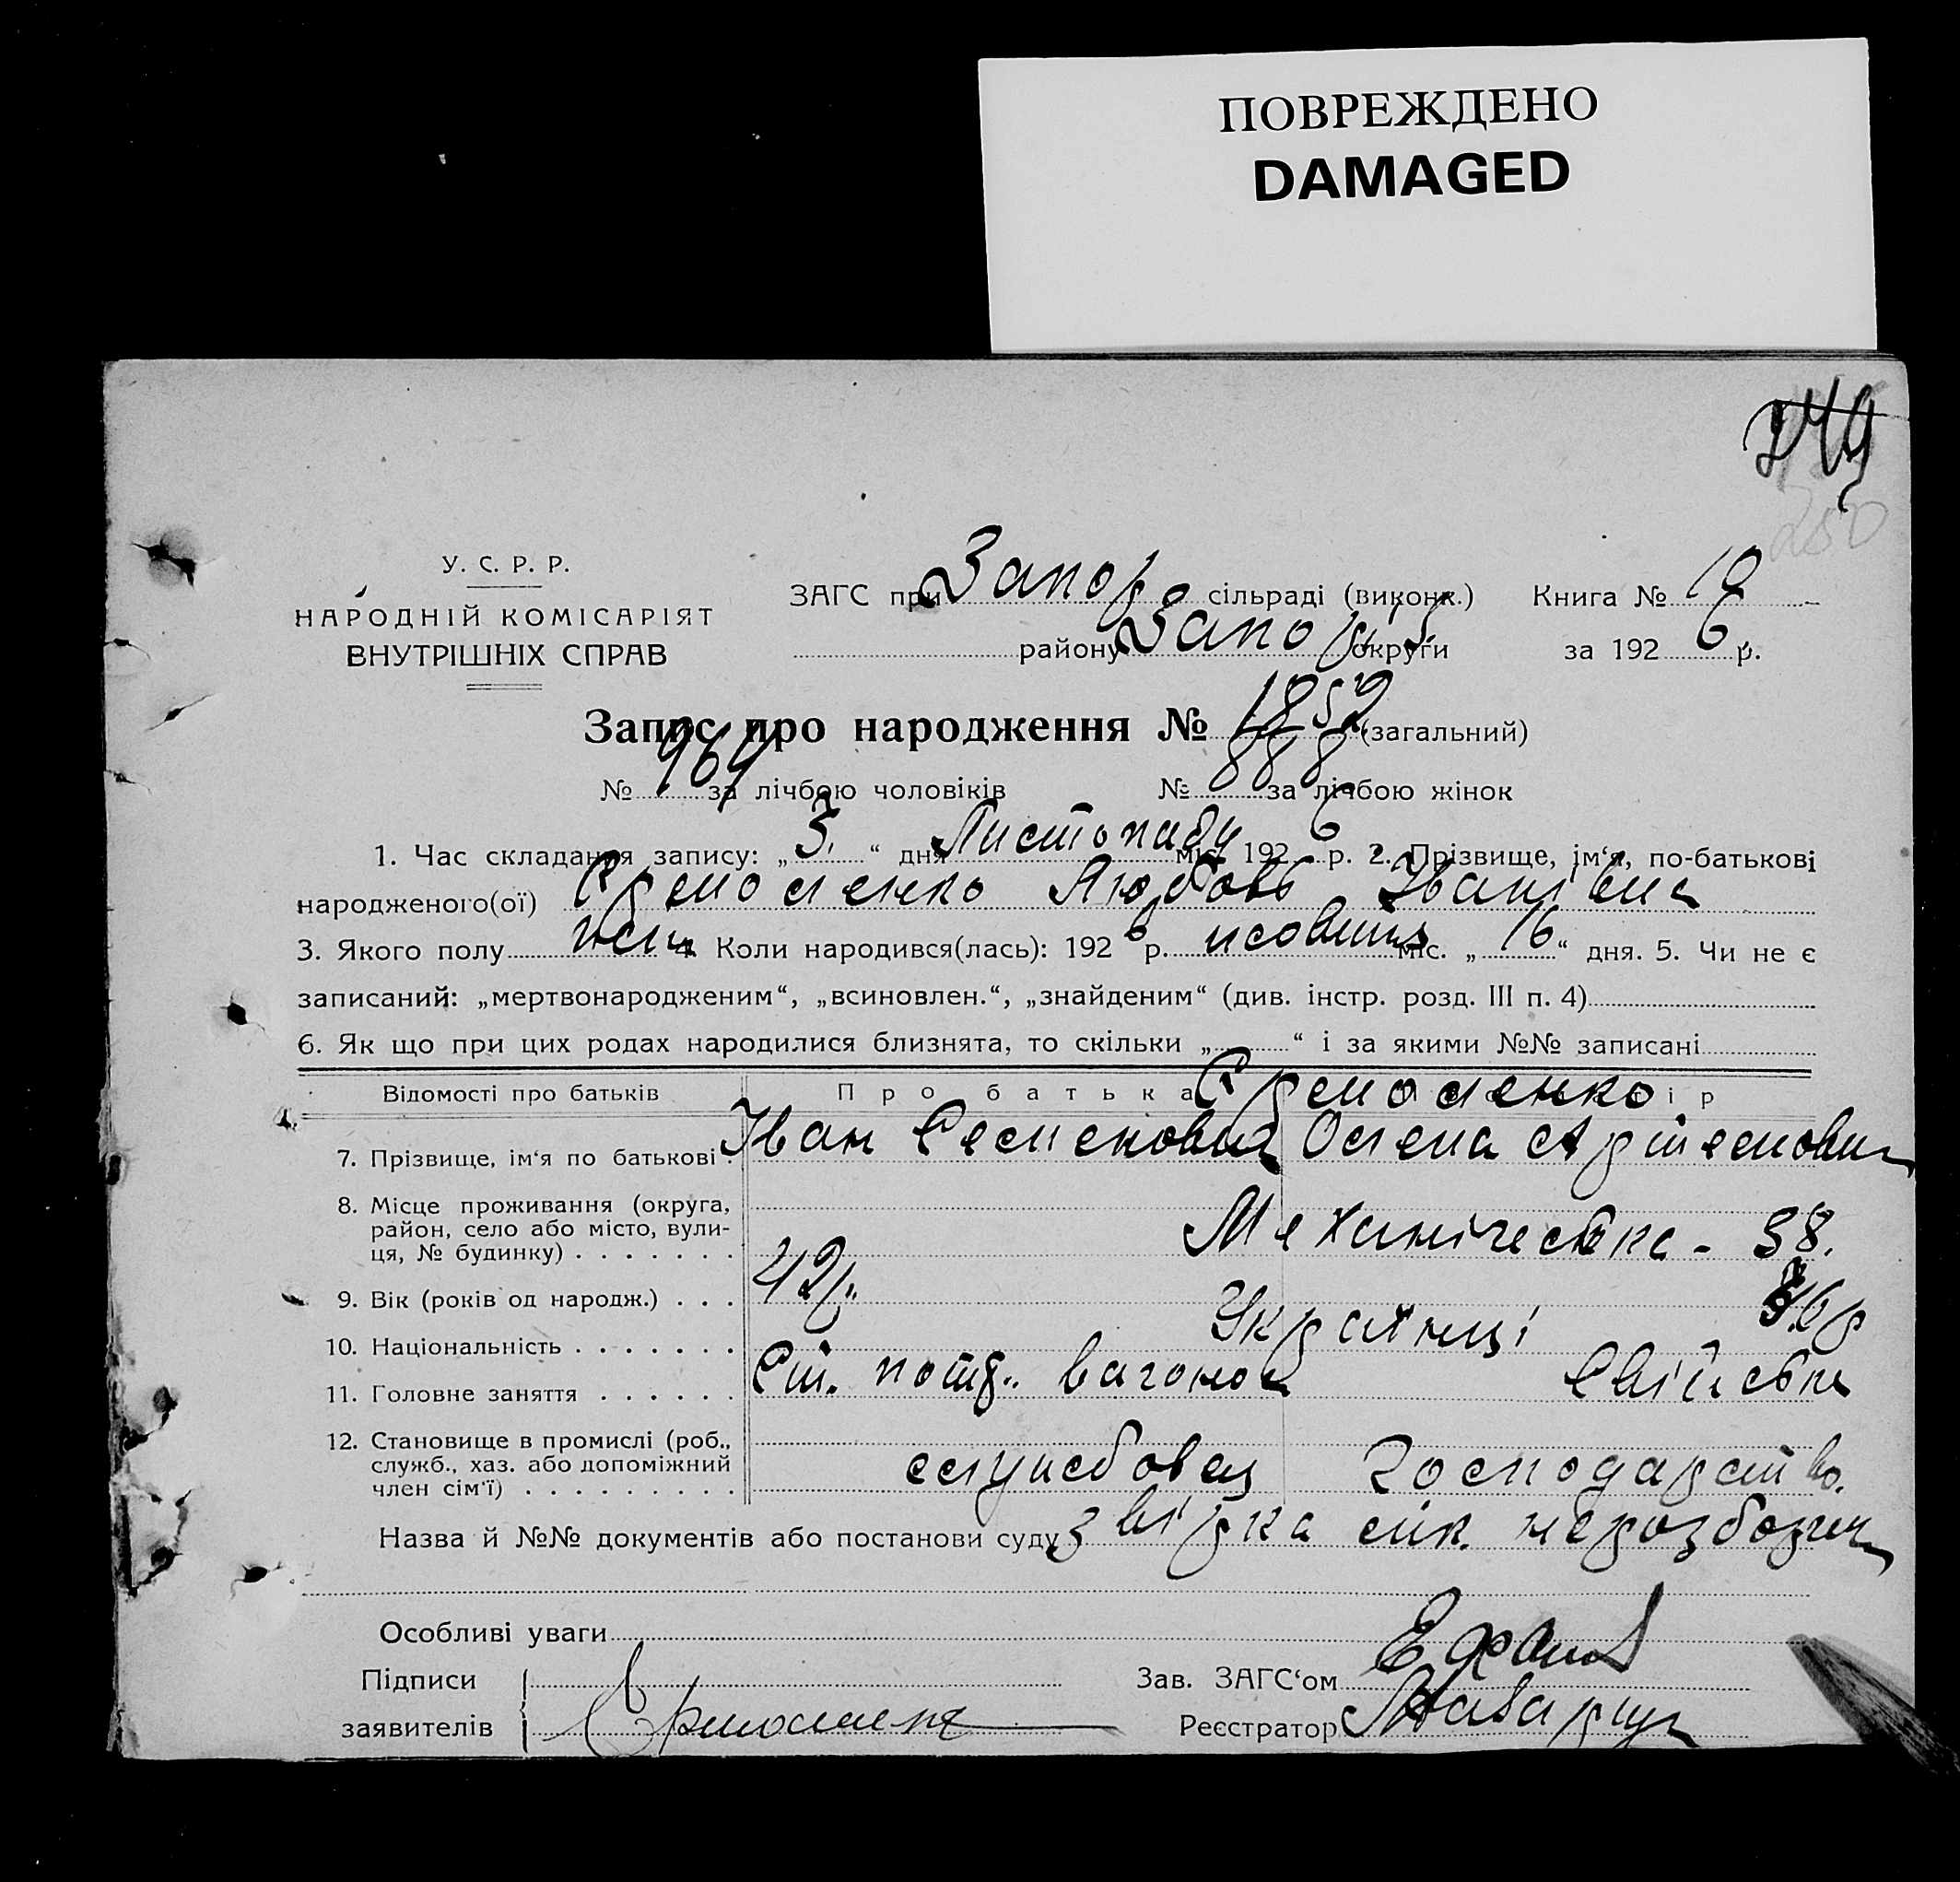 ПОВРЕЖДЕНО
DAMAGED
У. С. Р. Р.
НАРОДНІЙ КОМІСАРІЯТ
ВНУТРІШНІХ СПРАВ
ЗАГС при Запор сільраді (виконк.) Книга № 10
району Запоріз округи за 1926 р.
Запис про народження № 1852 (загальний)
№ 964 за лічбою чоловіків № 888 за лічбою жінок
1. Час складання запису: „ 5. “ дня Листопаду міс. 1926 р. 2. Прізвище, ім‘я, по-батькові
народженого(ої) Єрмоленко Любовь Іванівна
3. Якого полу жін 4. Коли народився(лась): 1926 р. жовтня міс. „ 16 “ дня. 5. Чи не є
записаний: „мертвонародженим“, „всиновлен.“, „знайденим“ (див. інстр. розд. III п. 4)
6. Як що при цих родах народилися близнята, то скільки „ “ і за якими №№ записані
Відомості про батьків Про батька Єрмоленко
7. Прізвище, ім‘я по батькові Іван Семенович Олена Артемовна
8. Місце проживання (округа,
район, село або місто, вули-
ця, № будинку) Механічеська - 38.
9. Вік (років од народж.) 42р.
10. Національність Українці
11. Головне заняття Свійське
12. Становище в промислі (роб.,
служб., хаз. або допоміжний
член сім‘ї) службовец господарство.
Назва й №№ документів або постанови суду
Особливі уваги
Підписи
заявителів Єрмоленко
Зав. ЗАГС‘ом
Реєстратор